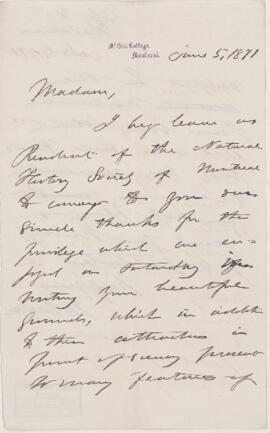 McGill College,
Montreal.
June 5, 1871
Madam,
I beg leave as
President of the Natural
History Society of Montreal
to convey to you our
sincere thanks for the
privilege which we en-
joyed on Saturday
visiting your beautiful
grounds, which in addition
to their attractions in
point of scenery present
so many features of